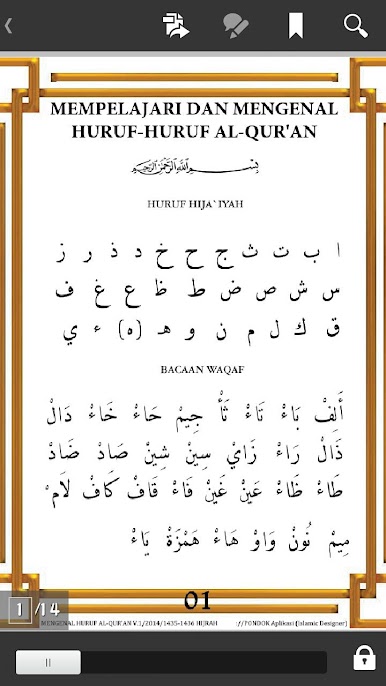 MEMPELAJARI DAN MENGENAL
HURUF-HURUF AL-QUR'AN
بسم الله الرحمن الرحيم
HURUF HIJA`IYAH
ا ب ت ث ج ح خ د ذ ر ز
س ش ص ض ط ظ ع غ ف
ق ك ل م ن و هـ (ه) ء ي
BACAAN WAQAF
أَلِفْ بَاءْ تَاءْ ثَأْ جِيمْ حَاءْ خَاءْ دَالْ
ذَالْ رَاءْ زَايْ سِينْ شِينْ صَادْ ضَادْ
طَاءْ ظَاءْ عَيْنْ غَيْنْ فَاءْ قَافْ كَافْ لَامْ
مِيمْ نُونْ وَاوْ هَاءْ هَمْزَةْ يَاءْ
01
1 /14
MENGENAL HURUF AL-QUR'AN V.1/2014/1435-1436 HIJRAH ://PONDOK Aplikasi (Islamic Designer)